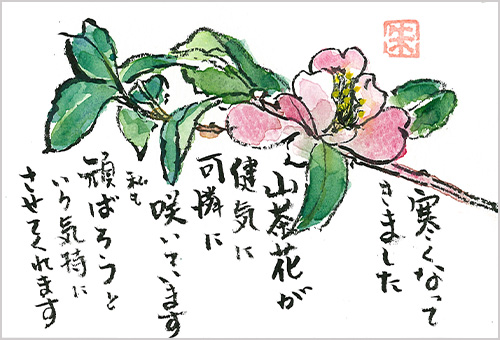 寒くなって
きました
山茶花が
健気に
可憐に
咲いています
私も
頑ばろうと
いう気持に
させてくれます
朱